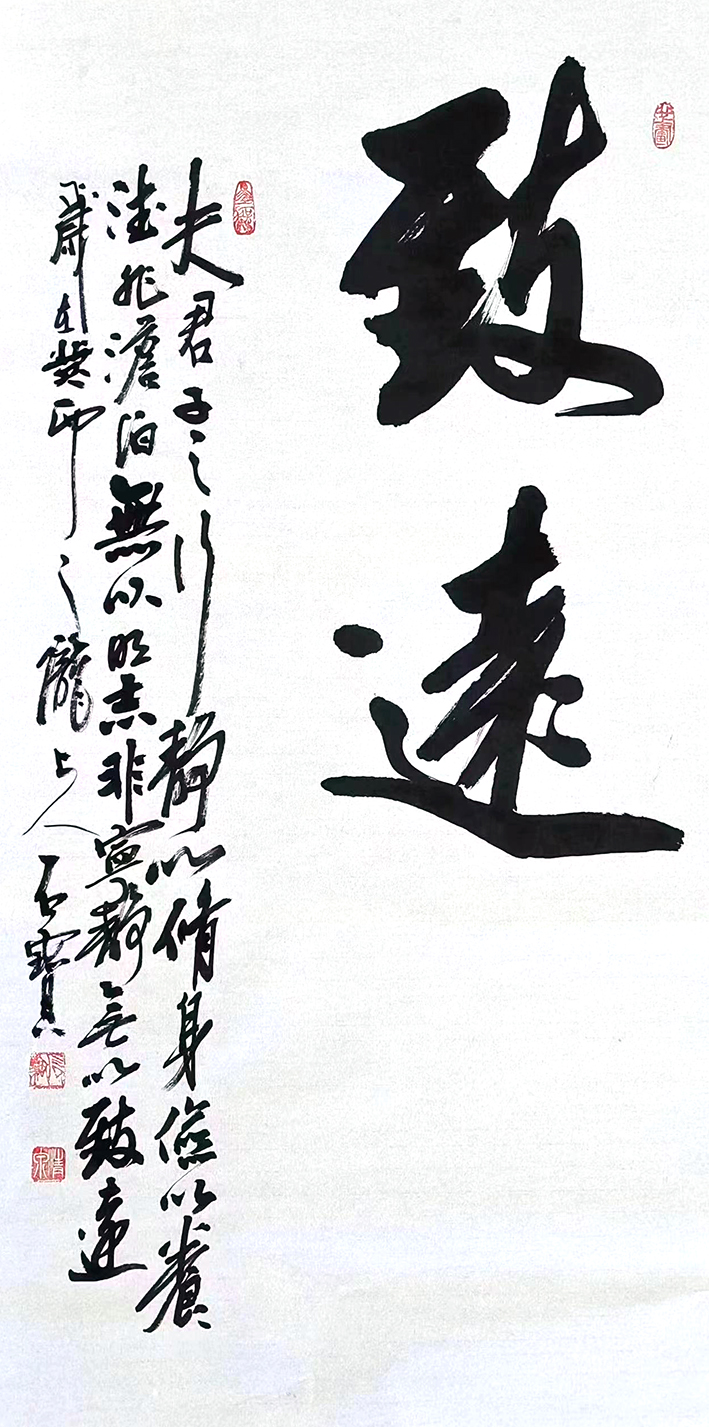 致遠
夫君子之行靜以脩身儉以養
德非澹泊無以明志非寧靜無以致遠
歲在癸卯之隴上人石寶